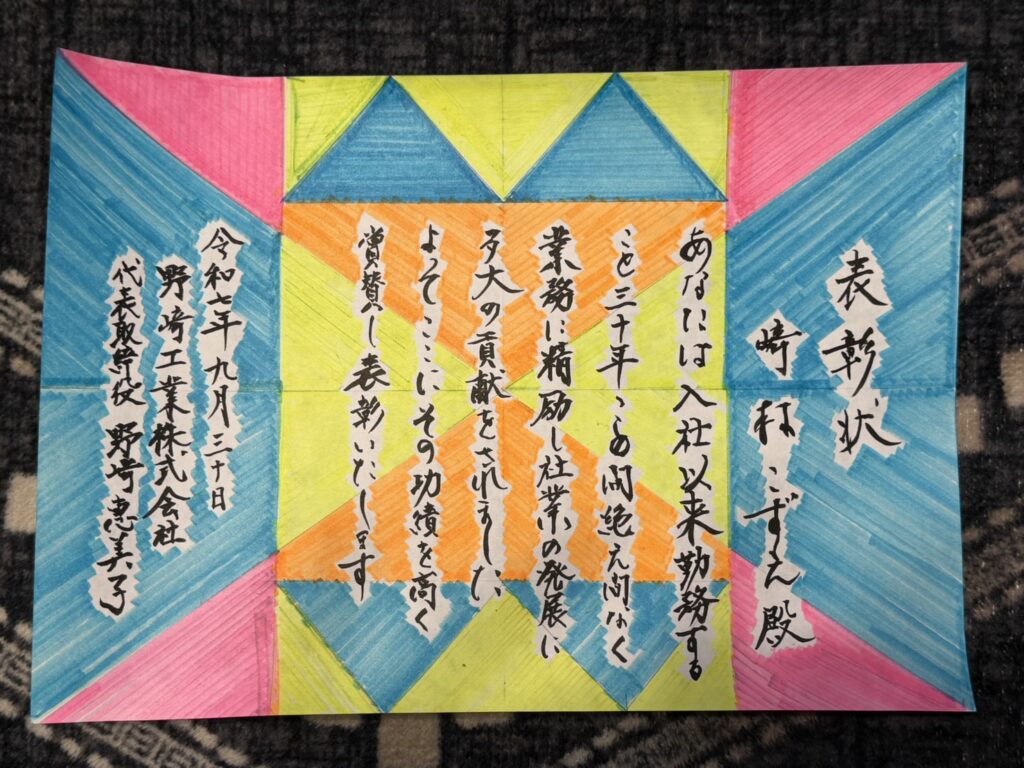 表彰状
崎村こずえ殿
あなたは入社以来勤務する
こと三十年この間絶え間なく
業務に精励し社業の発展に
多大の貢献をされました
よってここにその功績を高く
賞賛し表彰いたします
令和七年九月三十日
野崎工業株式会社
代表取締役野崎恵美子